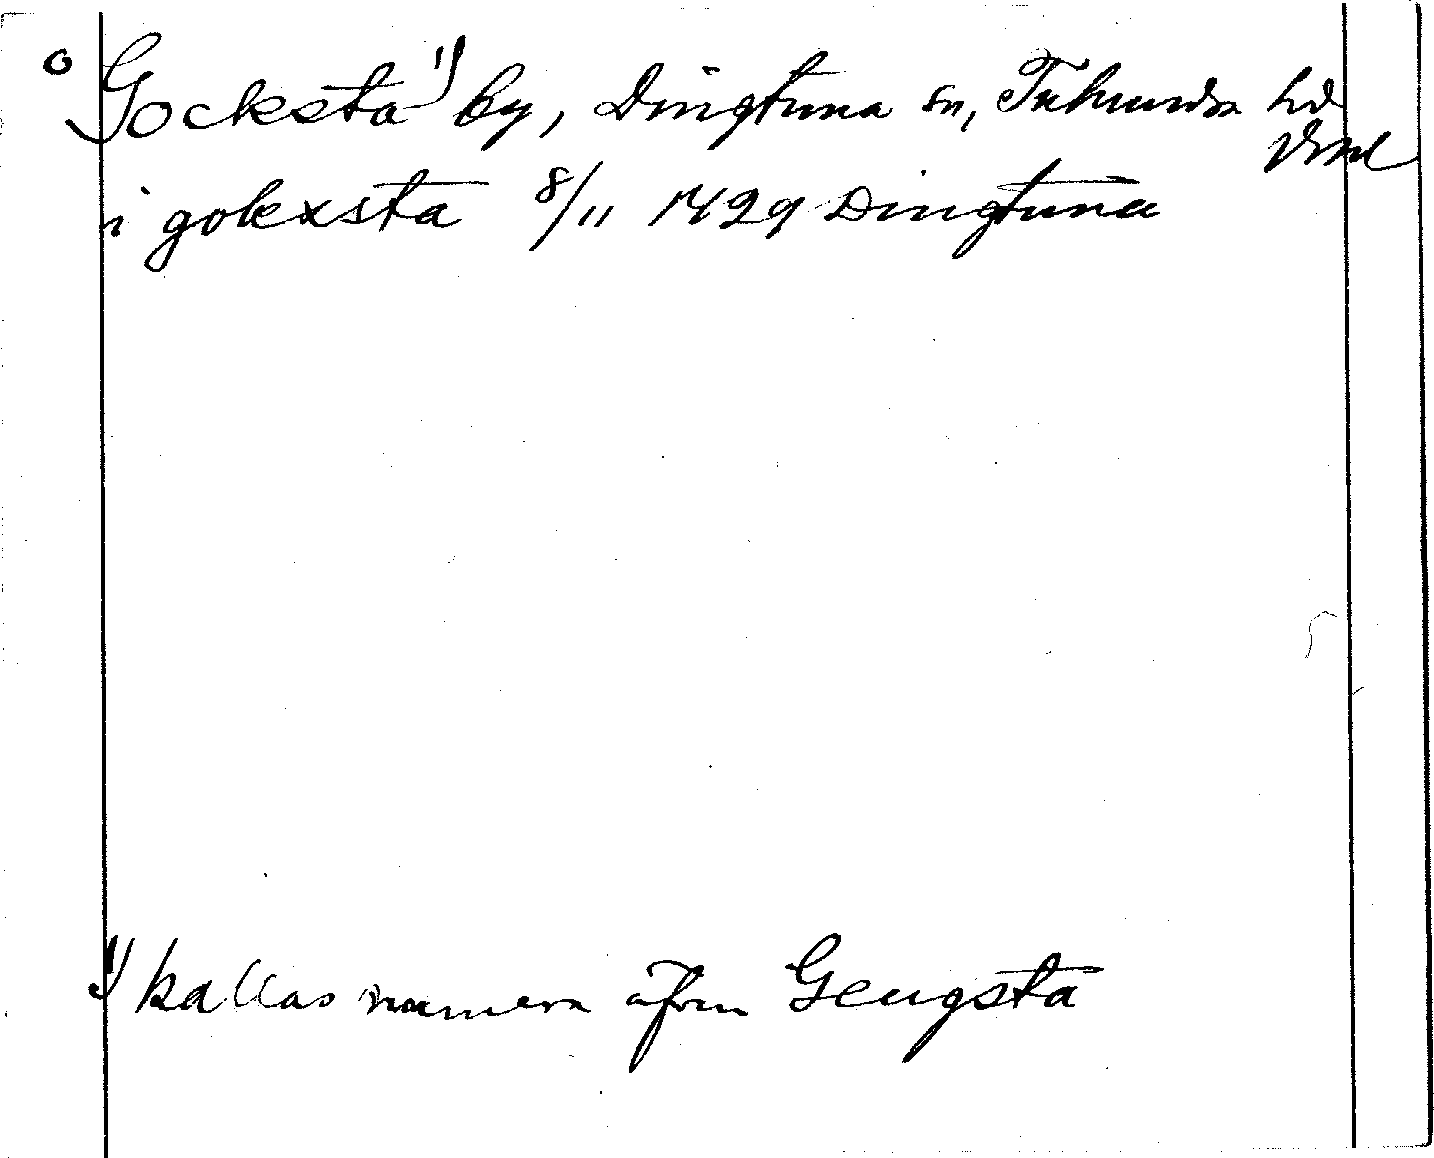 o Gocksta 1) by, Dingtuna sn, Tuhundra hd
Vsml
i gokxsta 8/11 1429 Dingtuna
1) kallas numera äfven Geugsta